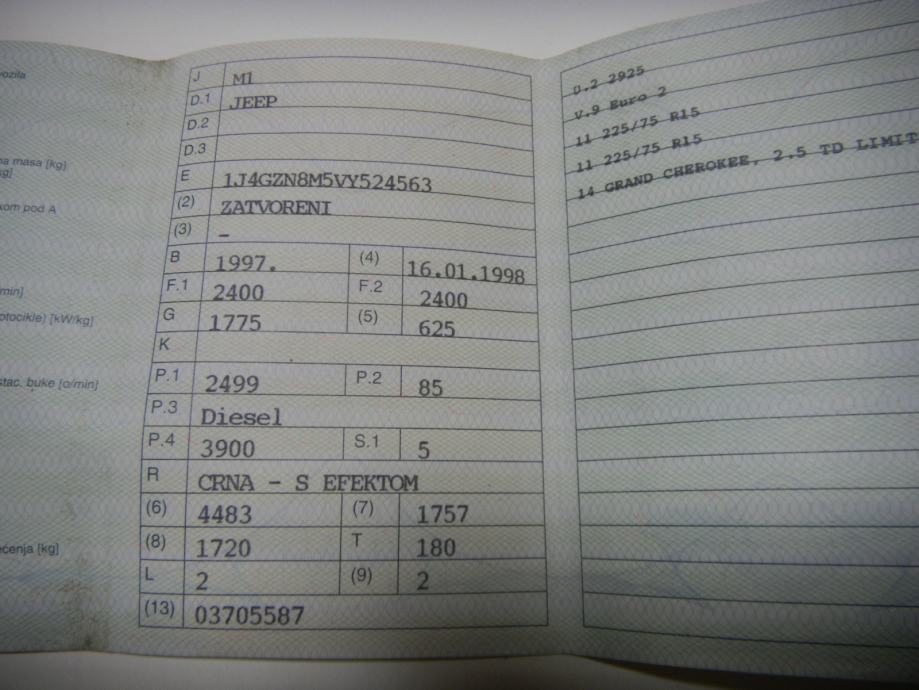 vozila
na masa [kg]
kg]
kom pod A
min]
otocikle) [kW/kg]
stac. buke [o/min]
ećenja [kg]
J M1
D.1 JEEP
D.2
D.3
E 1J4GZN8M5VY524563
(2) ZATVORENI
(3) –
B 1997. (4) 16.01.1998
F.1 2400 F.2 2400
G 1775 (5) 625
K
P.1 2499 P.2 85
P.3 Diesel
P.4 3900 S.1 5
R CRNA - S EFEKTOM
(6) 4483 (7) 1757
(8) 1720 T 180
L 2 (9) 2
(13) 03705587
U.2 2925
V.9 Euro 2
11 225/75 R15
11 225/75 R15
14 GRAND CHEROKEE, 2.5 TD LIMIT